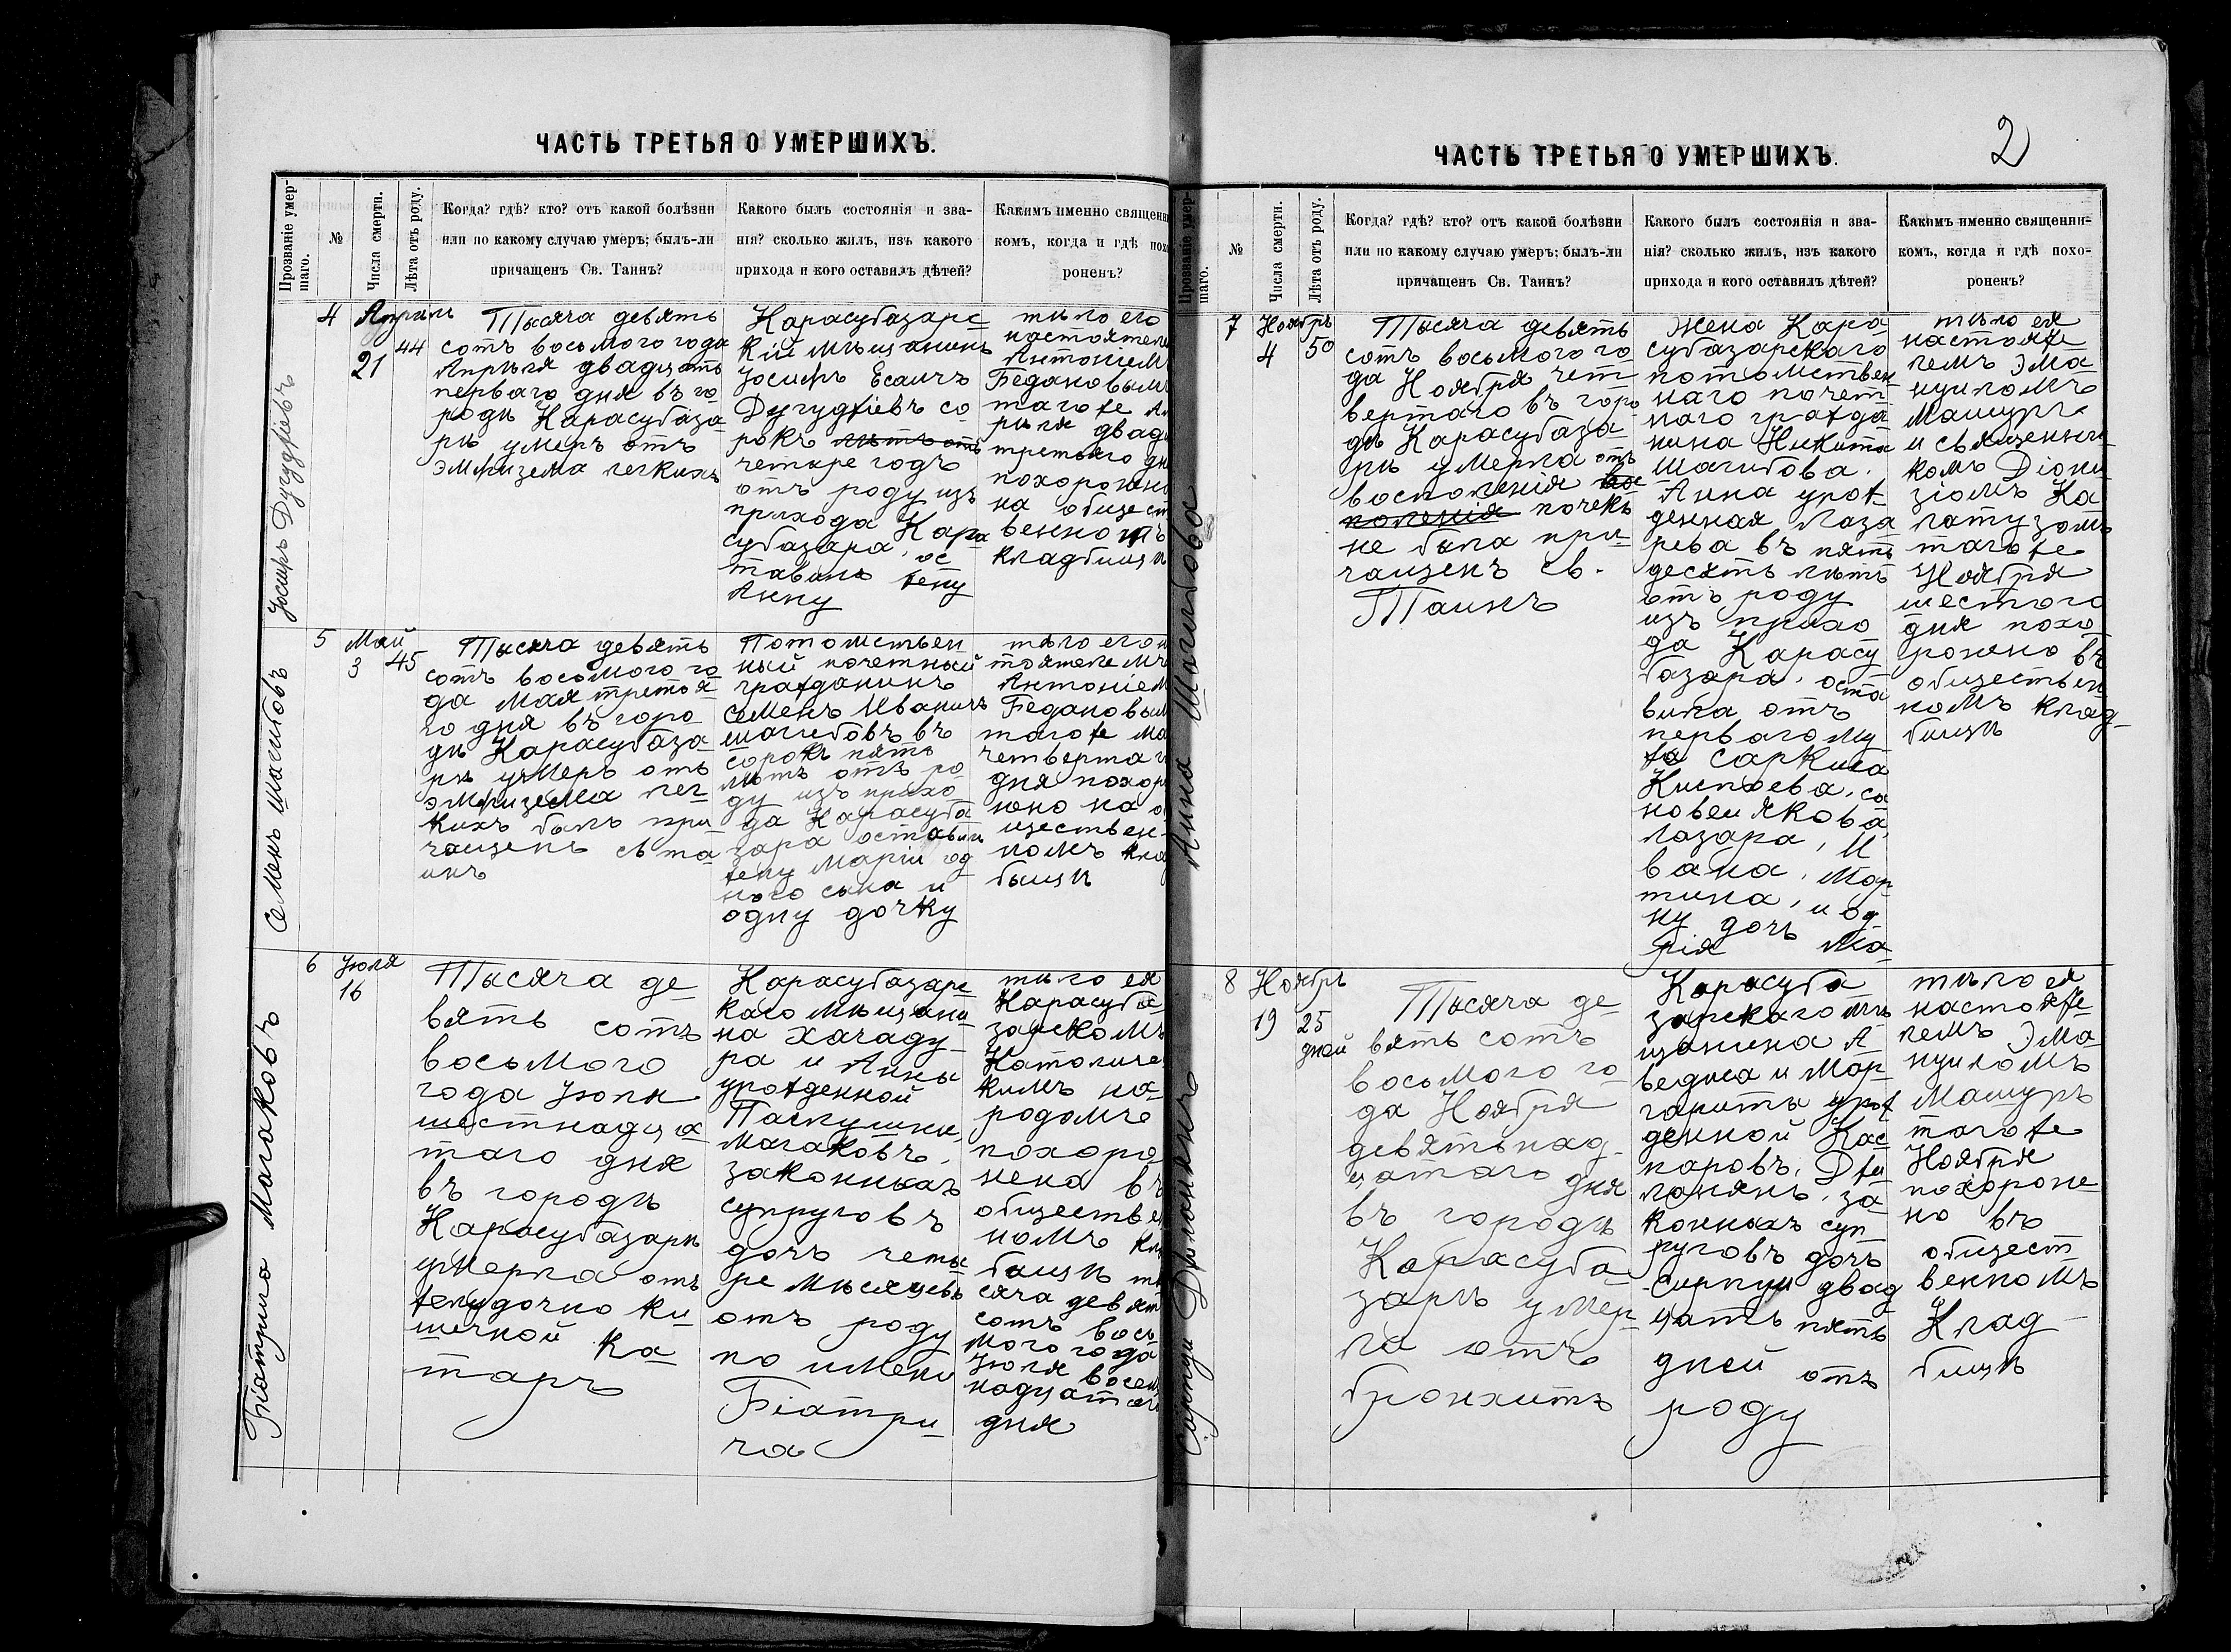 ЧАСТЬ ТРЕТЬЯ О УМЕРШИХЪ.
Прозваніе умер-
шаго.
№
Числа смерти.
Лѣта отъ роду.
Когда? гдѣ? кто? отъ какой болѣзни
или по какому случаю умеръ; былъ-ли
причащенъ Св. Таинъ?
Какого былъ состоянія и зва-
нія? сколько жилъ, изъ какого
прихода и кого оставилъ дѣтей?
Какимъ именно священни
комъ, когда и гдѣ похо
роненъ?
4
21
44
Тысяча девять
сотъ восьмого года
Апрѣля двадцать
перваго дня въ го
родѣ Карасубаза
рѣ умеръ отъ
эмфизема легкихъ
Карасубазарс
кій мѣщанинъ
Іосифъ Есаичъ
со
рокъ лѣтъ отъ
четыре годъ
отъ роду изъ
прихода Кара
субазара, ос
тавилъ жену
Анну
тѣло его
настоятеле
Антоніем
Бедановым
тагоже Ап
рѣля двад
третьяго дн
похоронен
на общест
венномъ
кладбищѣ
5
Май
3
45
Семенъ Шагибовъ
Тысяча девять
сотъ восьмого го
да мая третья
го дня въ горо
дѣ Карасубаза
рѣ умеръ отъ
эмфизема лег
кихъ былъ при
чащенъ св та
инъ
Потомствен
ный почетный
гражданинъ
Семенъ Иваничъ
Шагибовъ въ
сорокъ пять
лѣтъ отъ ро
ду изъ прихо
да Карасуба
зара оставилъ
жену Маріи од
ного сына и
одну дочку
тѣло его н
тоятелемъ
Антоніем
Бедановым
тагоже ма
четвертаг
дня похор
нено на о
ществен
номъ кла
бищѣ
6
Іюля
16
Тысяча де
вять сотъ
восьмого
года Іюля
шестнадца
таго дня
въ городѣ
Карасубазарѣ
умерла отъ
желудочно ки
шечной ка
таръ
Карасубазарс
каго мѣщани
на Хачаду
ра и Анны
урожденной
Магаковъ,
законныхъ
супруговъ
дочь четы
ре мѣсяцевъ
отъ роду
по имени
Біатри
ча
тѣло ея
Карасуба
зарскомъ
Католиче
кимъ на
родомъ
похоро
нена въ
обществе
номъ кла
бищѣ ты
сяча девят
сотъ вось
мого года
Іюля восем
надцатаго
дня
ЧАСТЬ ТРЕТЬЯ О УМЕРШИХЪ.
2
Прозваніе умер-
шаго.
№
Числа смерти.
Лѣта отъ роду.
Когда? гдѣ? кто? отъ какой болѣзни
или по какому случаю умеръ; былъ-ли
причащенъ Св. Таинъ?
Какого былъ состоянія и зва-
нія? сколько жилъ, изъ какого
прихода и кого оставилъ дѣтей?
Какимъ именно священни-
комъ, когда и гдѣ похо-
роненъ?
7
Ноябрь
4
50
Анна Шагибова
Тысяча девять
сотъ восьмого го
да Ноября чет
вертаго въ горо
дѣ Карасубаза
рѣ умерла отъ
восполенія вос
поленія почекъ
не была при
чащенъ св.
Таинъ
Жена Кара
субазарскаго
потомствен
наго почет
наго гражда
нина Никита
Шагибова.
Анна урож
денная Лаза
рева въ пять
десять лѣтъ
отъ роду
изъ прихо
да Карасу
базара, оста
вила отъ
перваго му
жа Саркиса
сы
новеи Якова,
Лазара, И
вана, Мар
тина, и од
ну дочь Ма
рія
тѣло ея
настояте
лемъ Эма
нуиломъ
Машуръ
и священни
комъ Діони
зіомъ Ка
латузомъ
тагоже
Ноября
шестого
дня похо
ронено въ
обществен
номъ клад
бищѣ
8
Ноябрь
19
25
дней
Тысяча де
вять сотъ
восьмого го
да Ноября
девятьнад
цатаго дня
въ городѣ
Карасуба
зарѣ умер
ла отъ
бронхитъ
Карасуба
зарскаго мѣ
щанина А
ведиса и Мар
гариты урож
денной Кас
паровъ,
за
конныхъ суп
руговъ дочь
двад
цать пять
дней отъ
роду
тѣло ея
настояте
лемъ Эма
нуиломъ
Машуръ
тагоже
Ноября
похороне
но въ
общест
венномъ
Клад
бищѣ